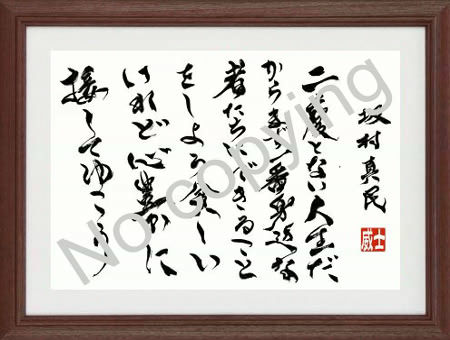 坂村真民
二度とない人生だ
からまず一番身近な
者たちにできるだけのこと
をしよう貧しい
けれど心豊かに
接してゆこう
威士
No copying